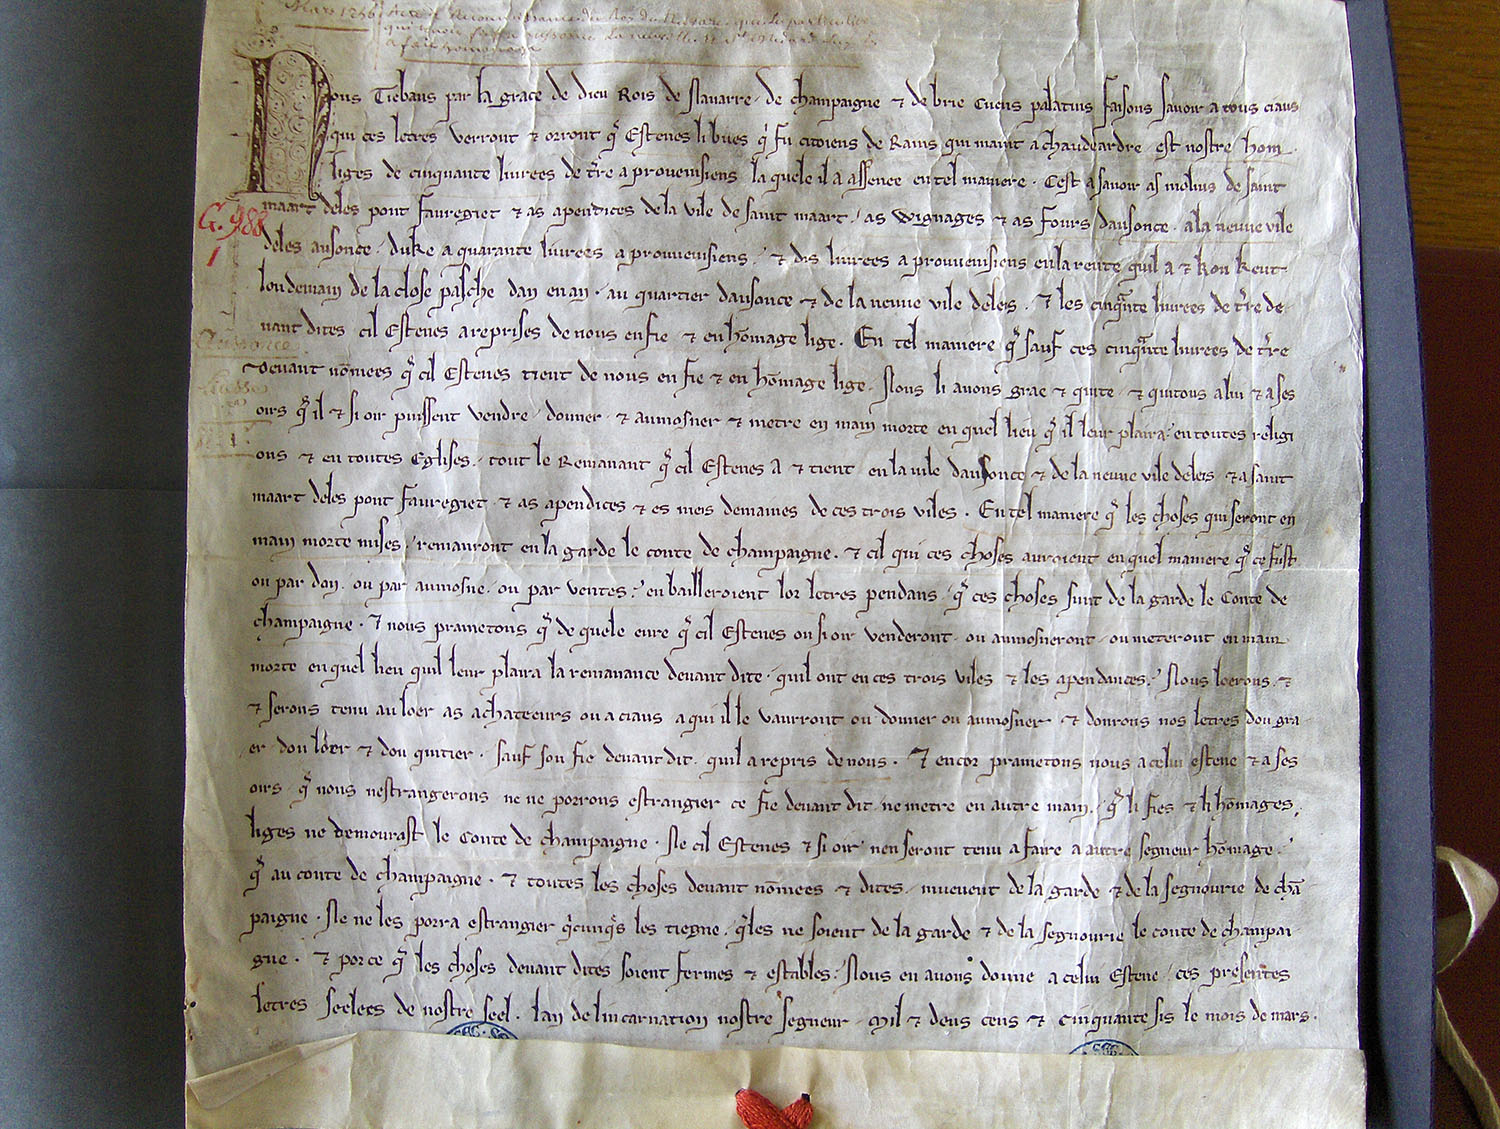 Mars 1256
Nous Tiebaus par la grace de dieu Rois de Navarre / de champaigne ⁊ de brie Cuens palatins faisons savoir a tous ciaus
qui ces letres verront ⁊ orront q̃ Estenes li bues q̓ fu citoiens de Rains qui maint a chaudeardre est nostre hom
liges de cinquante livrees de t̃re a prouvenisiens la quele il a assenee en tel maniere . Cest a savoir as molins de saint
maart deles pont favregiet ⁊ as apendices de la vile de saint maart / as wignages ⁊ as fours dausonce . a la nueve vile
deles ausonce / duke a quarante livrees a prouvenisiens / ⁊ dis livrees a prouvenisiens en la rente quil a ⁊ kon keut
lendemain de la close pasche dan en an . au quartier dausonce ⁊ de la nueve vile deleis . ⁊ les cinq̃nte livrees de t̃re de
vant dites cil Estenes a reprises de nous en fie ⁊ en hōmage lige . En tel maniere q̃ sauf ces cinq̃nte livrees de t̃re
devant nōmees q̃ cil Estenes tient de nous en fie ⁊ en hōmage lige . Nous li avons grae ⁊ quite ⁊ quitons a lui ⁊ a ses
oirs q̃ il ⁊ si oir puissent vendre / donner ⁊ aumosner ⁊ metre en main morte en quel lieu q̃ il leur plaira / en toutes religi
ons ⁊ en toutes Eglises / tout le Remanant q̃ cil Estenes a ⁊ tient en la vile dausonce ⁊ de la nueve vile deleis ⁊ a saint
maart deles pont favregiet ⁊ as apendices ⁊ es mies demaines de ces trois viles . En tel maniere q̃ les choses qui seront en
main morte mises / remanront en la garde le conte de champaigne . ⁊ cil qui ces choses avroient en quel maniere q̃ ce fust
ou par don . ou par aumosne / ou par ventes / en bailleroient lor letres pendans / q̃ ces choses sunt de la garde le Conte de
champaigne . ⁊ nous prametons q̃ de quele eure q̃ cil Estenes ou si oir venderont . ou aumosneront / ou meteront en main
morte en quel lieu quil leur plaira la remanance devant dite / quil ont en ces trois viles ⁊ les apendances / Nous loerons ⁊
⁊ serons tenu au loer as achateeurs ou a ciaus a qui il le vaurront ou donner ou aumosner ⁊ donrons nos letres dou gra
er dou loer ⁊ dou quitier . sauf son fie devant dit quil a repris de nous . ⁊ encor prametons nous a celui estene ⁊ a ses
oirs q̃ nous nestrangerons ne ne porrons estrangier ce fie devant dit / ne metre en autre main / q̃ li fies ⁊ li hōmages
liges ne demourast le Conte de champaigne . Ne cil Estenes ⁊ si oir nen seront tenu a faire a autre segneur hōmage /
q̃ au conte de champaigne . ⁊ toutes les choses devant nōmees ⁊ dites / muevent de la garde ⁊ de la segnourie de chā
paigne . Ne ne les porra estrangier q̓cunq̃s les tiegne / q̃les ne soient de la garde ⁊ de la segnourie le conte de champai
gne . ⁊ por ce q̃ les choses devant dites soient fermes ⁊ estables / Nous en avons donne a celui Estene / ces presentes
letres seelees de nostre seel . lan de lincarnation nostre segneur . Mil ⁊ deus cens ⁊ cinquante sis le mois de mars .
G. 988
1
Ausonce